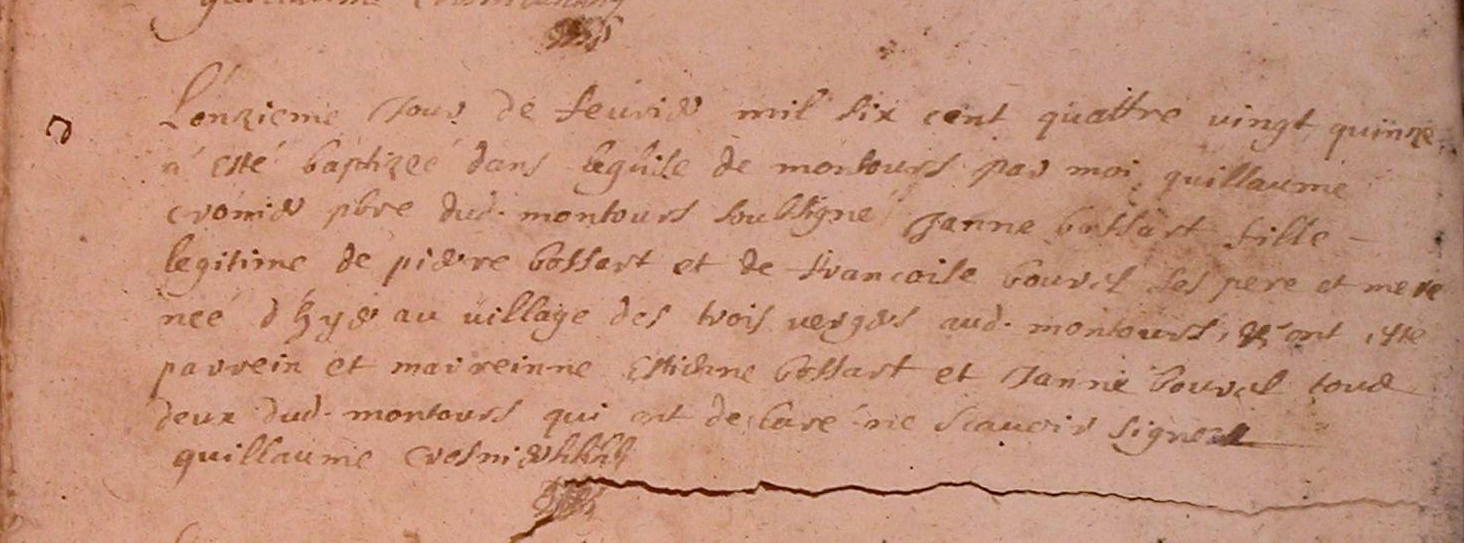 guillaume
L'onzieme Jour de feuvrier mil six cent quattre vingt quinze
a esté baptizeé dans leglise de montours par moi guillaume
cronier pbre dud. montours soubsigné Janne bossart fille
legitime de pierre bossart et de francoise bouvel ses pere et mere
neé d'hyer au village des trois verges aud. montours, & ont esté
parrein et marreinne Estienne bossart et Janne bouvel tous
deux dud. montours qui ont declaré ne scauvoir signer
guillaume cronier